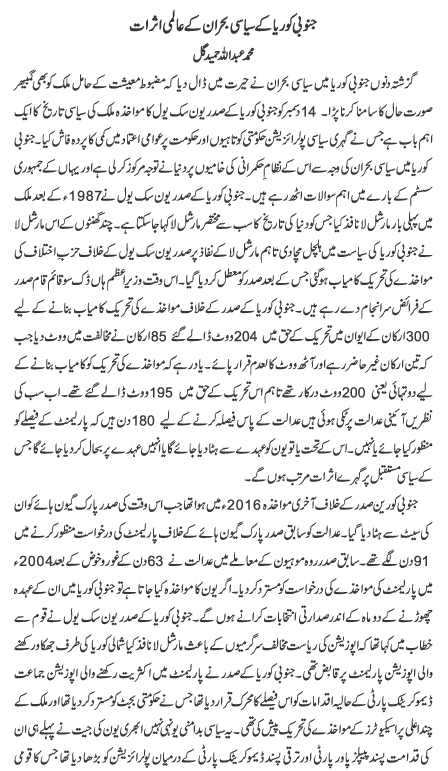 جنوبی کوریا کے سیاسی بحران کے عالمی اثرات
محمد عبداللہ حمید گل
گزشتہ دنوں جنوبی کوریا میں سیاسی بحران نے حیرت میں ڈال دیا کہ مضبوط معیشت کے حامل ملک کو بھی گھمبیر
صورت حال کا سامنا کرنا پڑا۔ 14 دسمبر کو جنوبی کوریا کے صدر یون سک یول کا مواخذہ ملک کی سیاسی تاریخ کا ایک
اہم باب ہے جس نے گہری سیاسی پولرائزیشن حکومتی کوتاہیوں اور حکومت پر عوامی اعتماد میں کمی کا پردہ فاش کیا۔ جنوبی
کوریا میں سیاسی بحران کی وجہ سے اس کے نظام حکمرانی کی خامیوں پر دنیا نے توجہ مرکوز کر لی ہے اور یہاں کے جمہوری
سسٹم کے بارے میں اہم سوالات اٹھ رہے ہیں۔ جنوبی کوریا کے صدر یون سک یول نے 1987ء کے بعد ملک
میں پہلی بار مارشل لا نافذ کیا جس کو دنیا کی تاریخ کا سب سے مختصر مارشل لا کہا جا سکتا ہے۔ چند گھنٹوں کے اس مارشل لا
نے جنوبی کوریا کی سیاست میں ہلچل مچا دی تاہم مارشل لا کے نفاذ پر صدر یون سک یول کے خلاف حزب اختلاف کی
مواخذے کی تحریک کامیاب ہو گئی جس کے بعد صدر کو معطل کر دیا گیا۔ اس وقت وزیراعظم ہان ڈک سو قائم قام صدر
کے فرائض سرانجام دے رہے ہیں۔ جنوبی کوریا کے صدر کے خلاف مواخذے کی تحریک کا میاب بنانے کے لیے
300 ارکان کے ایوان میں تحریک کے حق میں 204 ووٹ ڈالے گئے 85 ارکان نے مخالفت میں ووٹ دیا جب
کہ تین ارکان غیر حاضر رہے اور آٹھ ووٹ کالعدم قرار پائے۔ یاد رہے کہ مواخذے کی تحریک کو کامیاب بنانے کے
لیے دو تہائی یعنی 200 ووٹ درکار تھے تاہم اس تحریک کے حق میں 195 ووٹ ڈالے گئے تھے۔ اب سب کی
نظریں آئینی عدالت پر ٹکی ہوئی ہیں عدالت کے پاس فیصلہ کرنے کے لیے 180 دن ہیں کہ پارلیمنٹ کے فیصلے کو
منظور کیا جائے یا نہیں۔ اس کے تحت یا تو یون کو عہدے سے ہٹا دیا جائے گا یا انہیں عہدے پر بحال کر دیا جائے گا جس
کے سیاسی مستقبل پر گہرے اثرات مرتب ہوں گے۔
جنوبی کورین صدر کے خلاف آخری مواخذہ 2016ء میں ہوا تھا جب اس وقت کی صدر پارک گیون ہائے کو ان
کی سیٹ سے ہٹا دیا گیا۔ عدالت کو سابق صدر پارک گیون ہائے کے خلاف پارلیمنٹ کی درخواست منظور کرنے میں
91 دن لگے تھے۔ سابق صدر روہ موہیون کے معاملے میں عدالت نے 63 دن کے غور و خوض کے بعد 2004ء
میں پارلیمنٹ کی مواخذے کی درخواست کو مسترد کر دیا۔ اگر یون کا مواخذہ کیا جاتا ہے تو جنوبی کوریا میں ان کے عہدہ
چھوڑنے کے دو ماہ کے اندر صدارتی انتخابات کرانے ہوں گے۔ جنوبی کوریا کے صدر یون سک یول نے قوم سے
خطاب میں کہا تھا کہ اپوزیشن کی ریاست مخالف سرگرمیوں کے باعث مارشل لا نافذ کیا شمالی کوریا کی طرف جھکاو رکھنے
والی اپوزیشن پارلیمنٹ پر قابض تھی۔ جنوبی کوریا کے صدر نے پارلیمنٹ میں اکثریت رکھنے والی اپوزیشن جماعت
ڈیموکریٹک پارٹی کے حالیہ اقدامات کو اس فیصلے کا محرک قرار دیا تھا جس نے حکومتی بجٹ کو مسترد کر دیا تھا اور ملک کے
چند اعلی پراسیکیوٹرز کے مواخذے کی تحریک پیش کی تھی۔ یہ سیاسی بدامنی یونہی نہیں ابھری یون کی جیت نے پہلے ہی ان
کی قدامت پسند پیپلز پاور پارٹی اور ترقی پسند ڈیموکریٹک پارٹی کے درمیان پولرائزیشن کو بڑھا دیا تھا جس کا قومی